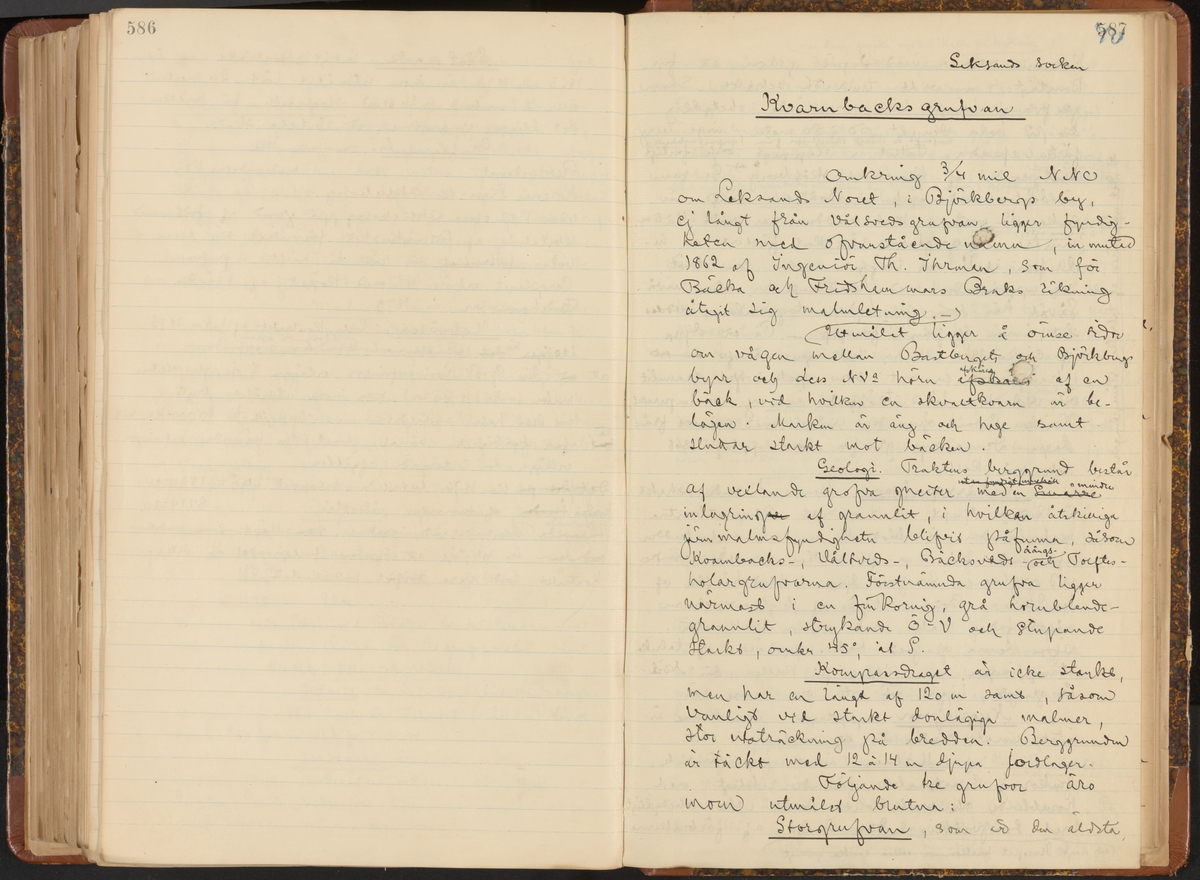 586
587
70
Leksands socken
Kvarnbacksgrufvan
Omkring 3/4 mil NNO
om Leksands Noret, i Björkbergs by,
ej långt från Vålsvedsgrufvan ligger fyndig-
heten med ofvanstående namn, inmutad
1862 af Ingeniör Th. Ihrman, som för
Bäcka och Fredshammars Bruks räkning
åtagit sig malmletning.
Utmålet ligger å ömse sidor
om vägen mellan Bastbergets och Björkbergs
byar och dess NVa hörn afskäres af en
bäck, vid hvilken en skvaltkvarn är be-
lägen. Marken är äng och hage samt
sluttar starkt mot bäcken.
Geologi. Traktens berggrund består
af vexlande grofva gneiser med en mindre
inlagring af granulit, i hvilken åtskilliga
järnmalmsfyndigheter blifvit påfunna, såsom
Kvarnbacks-, Vålsveds-, Bäcksveds- och
holargrufvorna. Förstnämnda grufva ligger
närmast i en finkornig, grå hornblende-
granulit, strykande Ö-V och stupande
starkt, omkr. 45°, åt S.
Kompassdraget är icke starkt,
men har en längd af 120 m samt, såsom
vanligt vid starkt donlägiga malmer,
stor utsträckning på bredden. Berggrunden
är täckt med 12 à 14 m djupa jordlager.
Följande tre grufvor äro
inom utmålet brutna:
Storgrufvan, som är den äldsta,